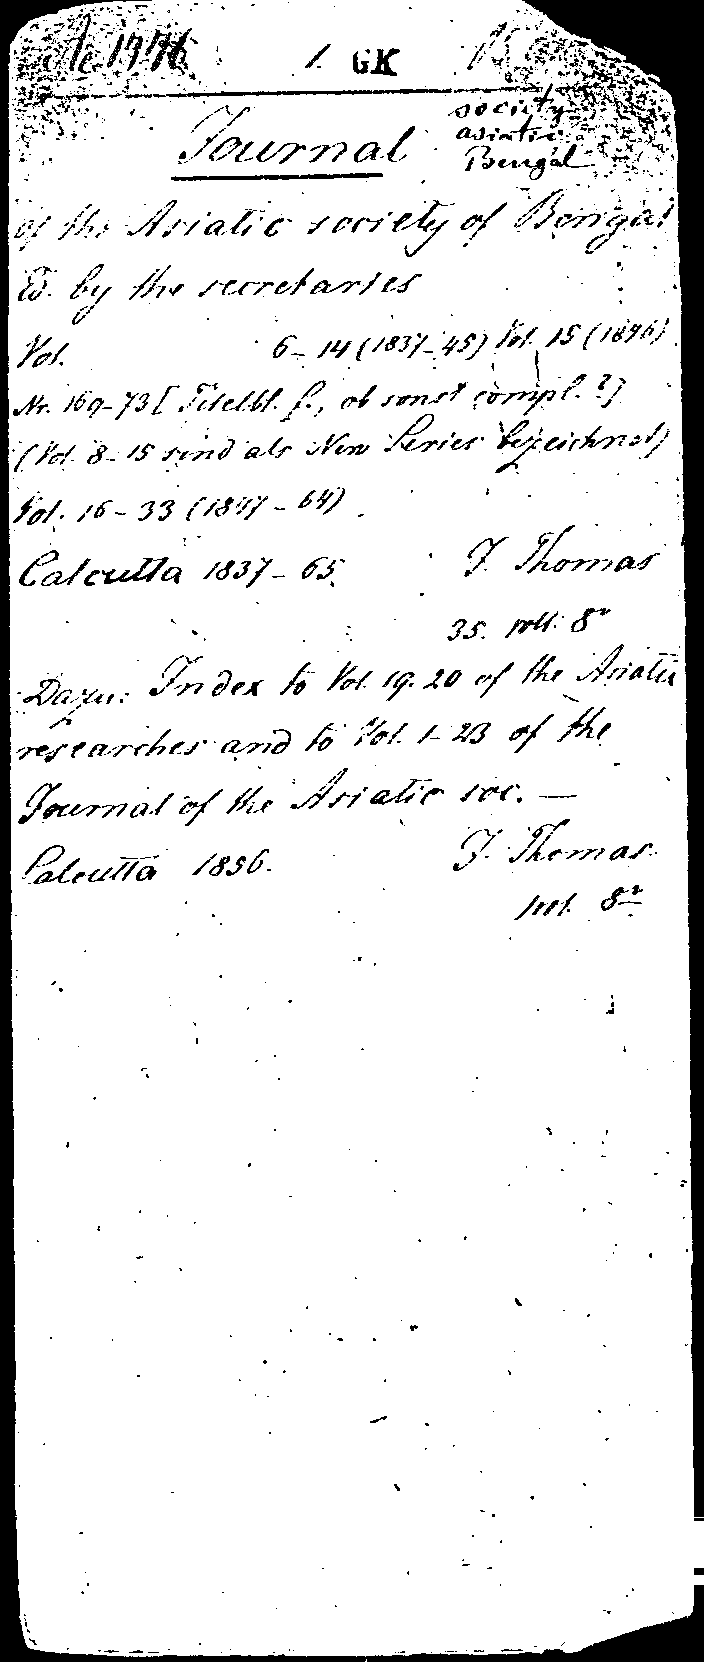 Ac 1776 1. GK
society
asiatic
Bengal
Journal
of the Asiatic society of Bengal
Ed. by the secretaries
Vol. 6-14 (1837-45) Vol. 15 (1846)
Nr. 169-73 [Titelbl. f., ob sonst compl.?]
(Vol. 8-15 sind als New Series bezeichnet)
Vol. 16-33 (1847-64)
Calcutta 1837-65. J. Thomas
35. voll. 8°
Dazu: Index to Vol. 19. 20 of the Asiatic
researches and to Vol. 1-23 of the
Journal of the Asiatic soc. —
Calcutta 1856. J. Thomas
1 vol. 8°